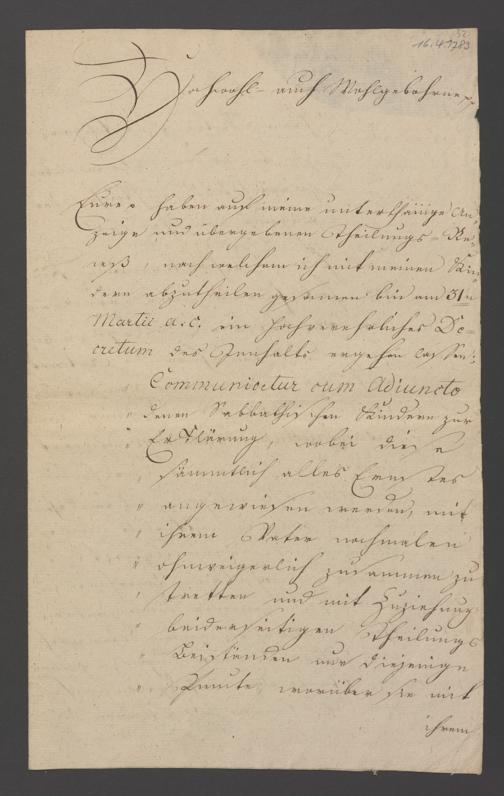 52
16.4.1783
Hochwohl- auch Wohlgebohrne
Eure haben auf meine unterthänige An-
zeige und übergebenen Theilungs-Re-
ceß, nach welchem ich mit meinen Kin-
dern abzutheilen gesonnen bin am 31n
Martii a. c. ein Hochverehrliches De-
cretum des Innhalts ergehen lassen:
Communicetur cum Adiuncto
denen Sabbathischen Kindern zur
Erklärung, wobei diese
sämmtlich alles Ernstes
angewiesen werden, mit
ihrem Vater nochmalen
ohnweigerlich zusammen zu
tretten und mit Zuziehung
beiderseitigen Theilungs
Beiständen nur diejenige
Puncte, worüber sie mit
ihrem